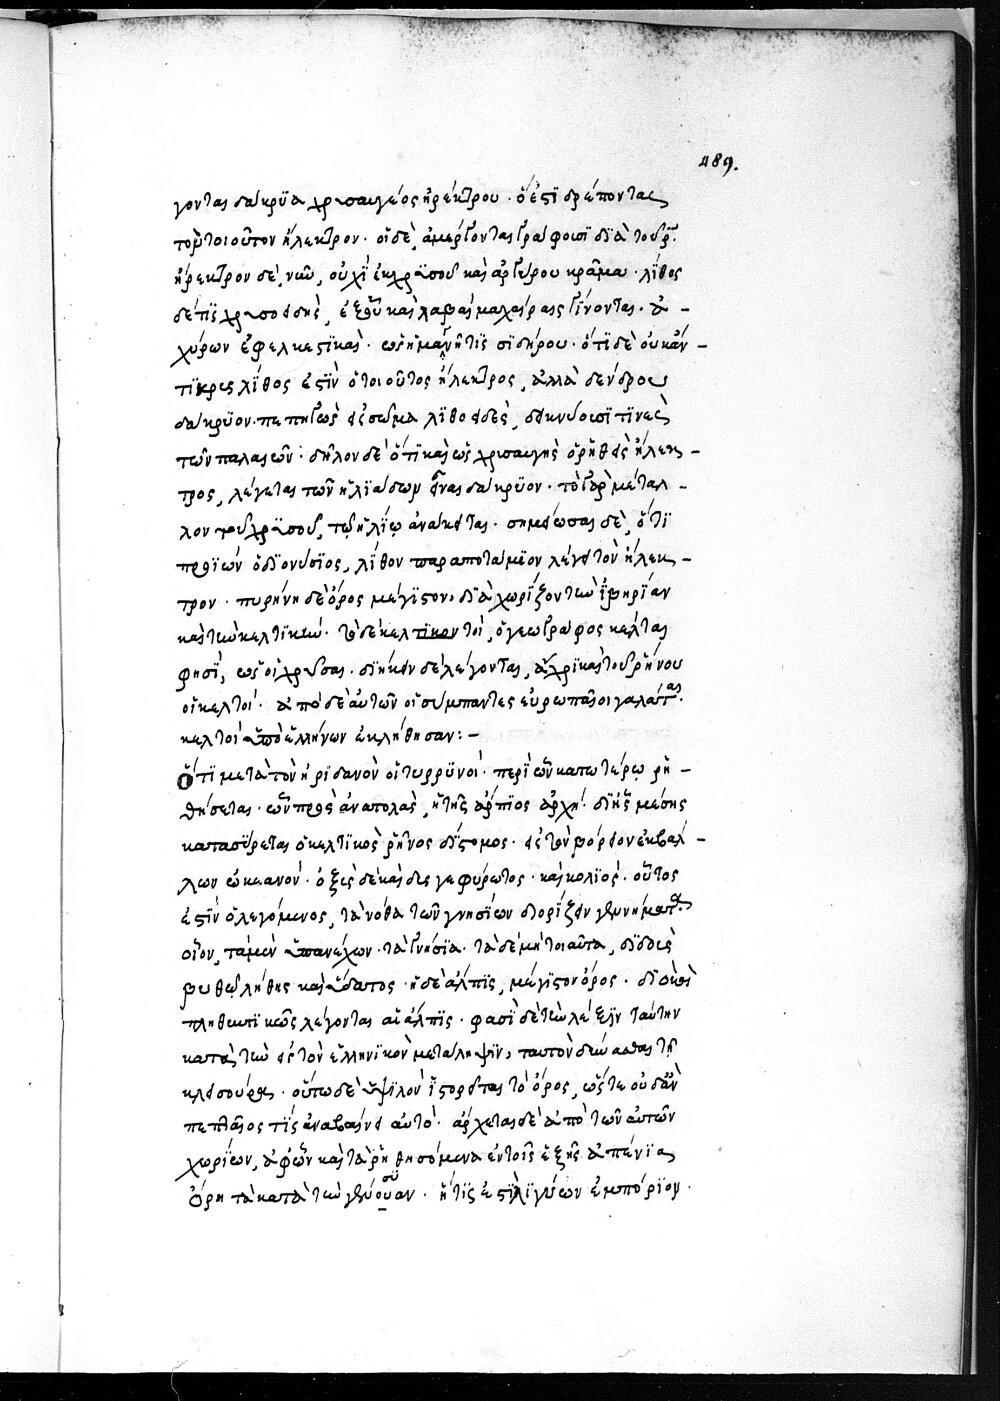 489.
γονται δάκρυα χρυσαυγέος ἠλέκτρου · ὅ ἐστι δρέπονται
τὸ τοιοῦτον ἤλεκτρον · οἱ δὲ, ἀμέργονται γράφουσι διὰ τοῦ γ̅.
ἤλεκτρον δὲ, νῦν, οὐχὶ ἐκ χρυσοῦ καὶ ἀργύρου κρᾶμα · λίθος
δέ τις χρυσοειδὴς, ἐξ οὗ καὶ λαβαὶ μαχαίραις γίνονται · ἀ -
χύρων ἐφελκεστικὰς · ὡς ἡ μαγνῆτις σιδήρου · ὅτι δὲ οὐκ ἄν -
τικρυς λίθος ἐστὶν ὁ τοιοῦτος ἤλεκτρος, ἀλλὰ δένδρου
δάκρυον πεπηγὼς εἰς σῶμα λιθοειδὲς, δεικνύουσί τινες
τῶν παλαιῶν · δῆλον δὲ ὅτι καὶ ὡς χρυσαυγὴς ὁ ῥηθεὶς ἤλεκ -
τρος, λέγεται τῶν ἡλιάδων εἶναι δάκρυον · τὸ γὰρ μέταλ -
λον τοῦ χρυσοῦ, τῷ ἡλίῳ ἀνάκειται · σημείωσαι δὲ, ὅτι
προϊὼν ὁ διονύσιος, λίθον παραποτάμιον λέγει τὸν ἤλεκ -
τρον · πυρήνη δὲ ὄρος μέγιστον, διαχωρίζον τὴν ἰβηρίαν
καὶ τὴν κελτικήν · τὸ δὲ κελτικὸν τοι, ὁ γεωγράφος κέλται
φησὶ, ὡς οἱ χρύσαι · διήκειν δὲ λέγονται, ἄχρι καὶ τοῦ ῥήνου
οἱ κελτοί · ἀπὸ δὲ αὐτῶν οἱ σύμπαντες εὐρωπαῖοι γαλάται.
κελτοὶ ὑπὸ ἑλλήνων ἐκλήθησαν : -
Ὅτι μετὰ τὸν ἠριδανὸν οἱ τυρρηνοί · περὶ ὧν κατωτέρω ῥη -
θήσεται · ὧν πρὸς ἀνατολὰς, ἡ τῆς ἄλπιος ἀρχή · δι' ἧς μέσης
κατασύρεται ὁ κελτικὸς ῥῆνος δίστομος · εἰς τὸν βόρειον ἐκβάλ -
λων ὠκεανόν · ὀξὺς δὲ καὶ δυσγεφύρωτος · καὶ σκολιός · οὗτος
ἐστὶν ὁ λεγόμενος, τὰ νόθα τῶν γνησίων διορίζειν γεννήματ.
οἷον, τὰ μὲν ὑπανέχων τὰ γνήσια · τὰ δὲ μὴ τοιαῦτα, διδοὺς
βυθῷ λήθης καὶ ὕδατος · ἡ δὲ ἄλπις, μέγιστον ὄρος · διὸ καὶ
πληθυντικῶς λέγονται αἱ ἄλπις · φασὶ δὲ τὴν λέξιν ταύτην
κατὰ τὴν εἰς τὸν ἑλληνικὸν μετάληψιν, ταυτὸν δύνασθαι τῇ
κλεισούρᾳ · οὕτω δὲ ὑψηλὸν ἱστορεῖται τὸ ὄρος, ὥστε οὐδὲ ἂν
πεμπταῖος τὶς ἀναβαίνει αὐτό · ἄρχεται δὲ ἀπὸ τῶν αὐτῶν
χωρίων, ἀφ' ὧν καὶ τὰ ῥηθησόμενα ἐν τοῖς ἑξῆς ἀπέννια
ὄρη τὰ κατὰ τὴν γένουαν · ἥτις ἐστὶ λιγύων ἐμπόριον ·